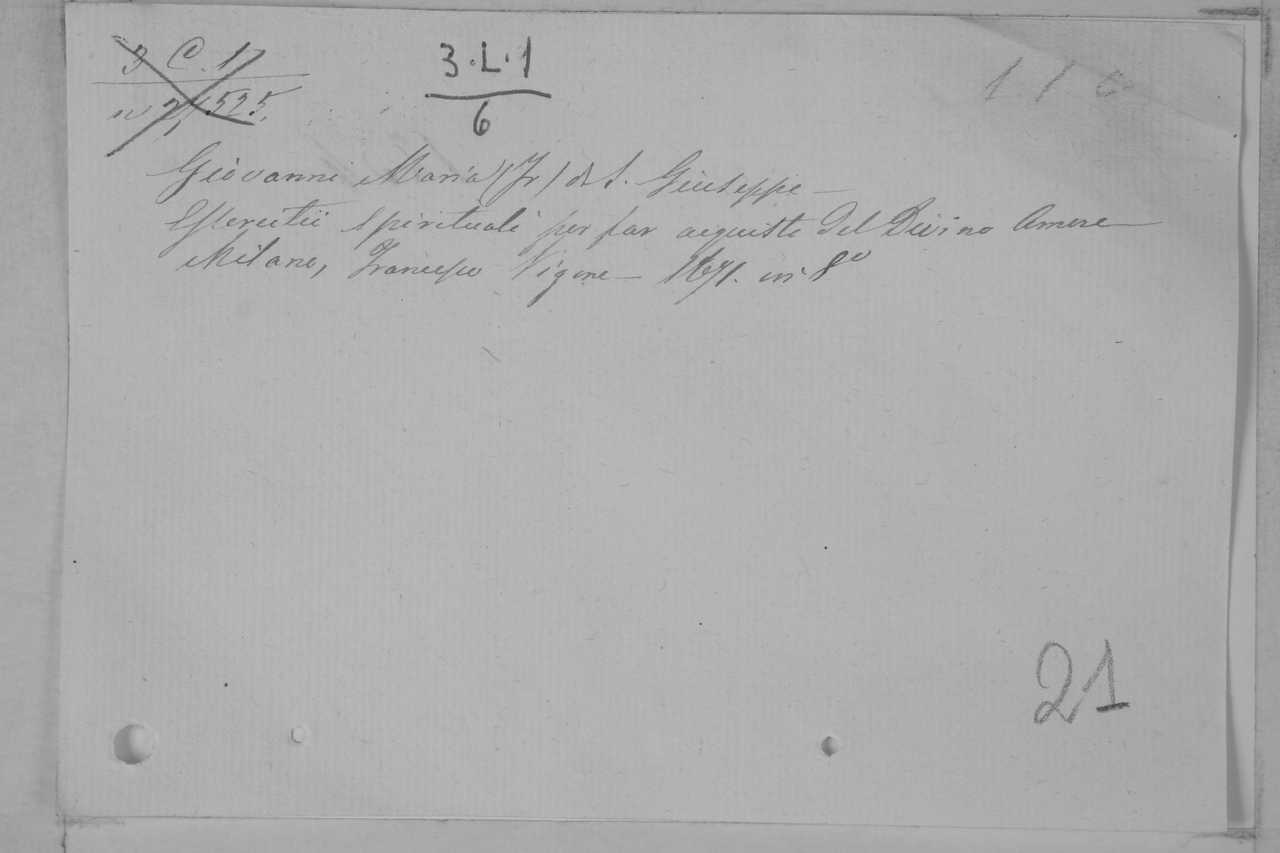 3 C. 17
n° 2,525.
3.L.1
6
1 1 6
Giovanni Maria (Fr) di S. Giuseppe —
Essercitii spirituali per far acquisto del Divino Amore —
Milano, Francesco Vigone — 1671. in 8°
21